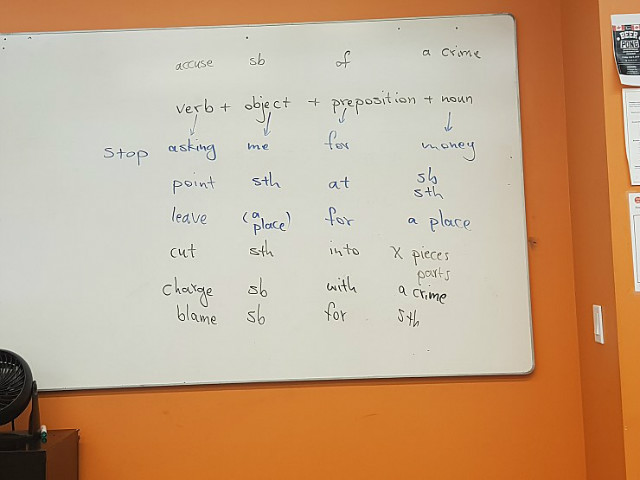 accuse sb of a crime
verb + object + preposition + noun
stop asking me for money
point sth at sb
sth
leave (a place) for a place
cut sth into X pieces
parts
charge sb with a crime
blame sb for sth
BEER
PONG